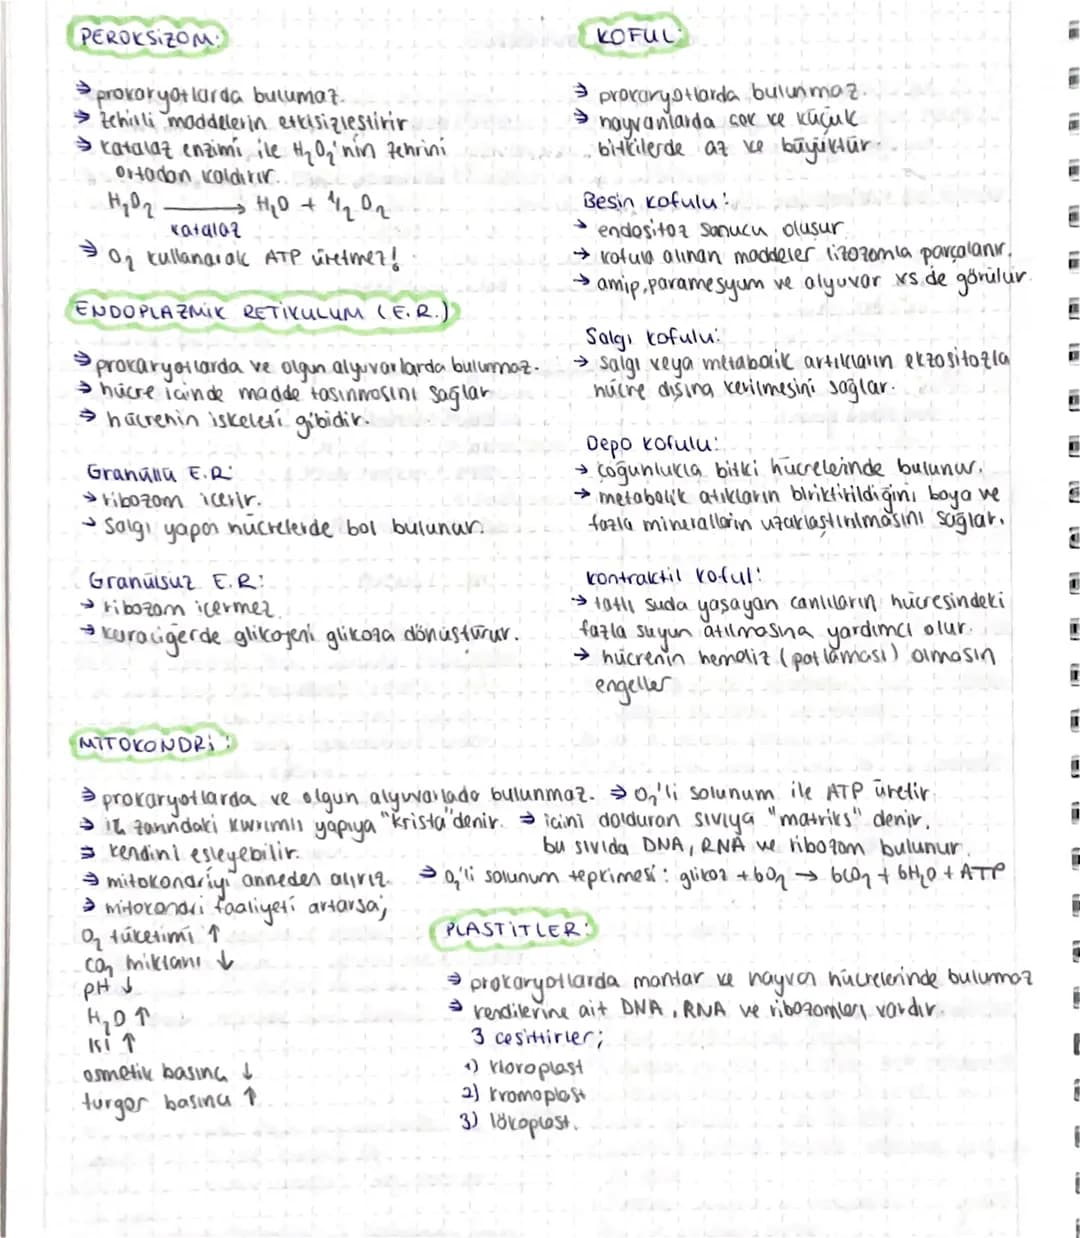 PEROKSİZOM:
→ prokaryotlarda bulumaz.
→ zehirli maddelerin etkisizleştirir
→ katalaz enzimi ile H₂O₂'nin zehrini
ortadan kaldırır.
H₂O₂ → H₂O + 1/2 O₂
katalaz
→ O₂ kullanarak ATP üretmez!
ENDOPLAZMİK RETİKULUM (E.R.)
→ prokaryotlarda ve olgun alyuvarlarda bulunmaz.
→ hücre içinde madde taşınmasını sağlar
→ hücrenin iskeleti gibidir.
Granüllü E.R:
→ ribozom içerir.
→ Salgı yapan hücrelerde bol bulunur.
Granülsuz E.R:
→ ribozom içermez
→ karaciğerde glikojeni glikoza dönüştürür.
KOFUL:
→ prokaryotlarda bulunmaz.
→ hayvanlarda çok ve küçük
bitkilerde az ve büyüktür.
Besin kofulu:
→ endositoz sonucu oluşur.
→ kofula alınan maddeler lizozomla parçalanır.
→ amip, paramesyum ve alyuvar xs.de görülür.
Salgı kofulu:
→ Salgı veya metabolik artıkların ekzositozla
hücre dışına verilmesini sağlar.
Depo kofulu:
→ çoğunlukla bitki hücrelerinde bulunur.
→ metabolik atıkların biriktirildiğini boya ve
fazla minerallarin uzaklaştırılmasını sağlar.
kontraktil koful:
→ tatlı suda yaşayan canlıların hücresindeki
fazla suyun atılmasına yardımcı olur.
→ hücrenin hemoliz (patlaması) olmasın
engeller
MİTOKONDRİ:
→ prokaryotlarda ve olgun alyuvarlada bulunmaz. → O₂'li solunum ile ATP üretir.
→ iç zarındaki kıvrımlı yapıya "krista" denir. → içini dolduran sıvıya "matriks" denir.
bu sıvıda DNA, RNA ve ribozom bulunur.
→ kendini eşleyebilir.
→ mitokondriyi anneden alırız. → O₂'li solunum tepkimesi: glikoz + 6O₂ → 6CO₂ + 6H₂O + ATP
→ mitokondri faaliyeti artarsa;
O₂ tüketimi ↑
CO₂ miktarı ↓
pH ↓
H₂O ↑
ısı ↑
osmotik basınç ↓
turgor basıncı ↑
PLASTİTLER:
→ prokaryotlarda mantar ve hayvan hücrelerinde bulunmaz
→ kendilerine ait DNA, RNA ve ribozomları vardır.
3 çeşittirler;
1) kloroplast
2) kromoplast
3) lökoplast.